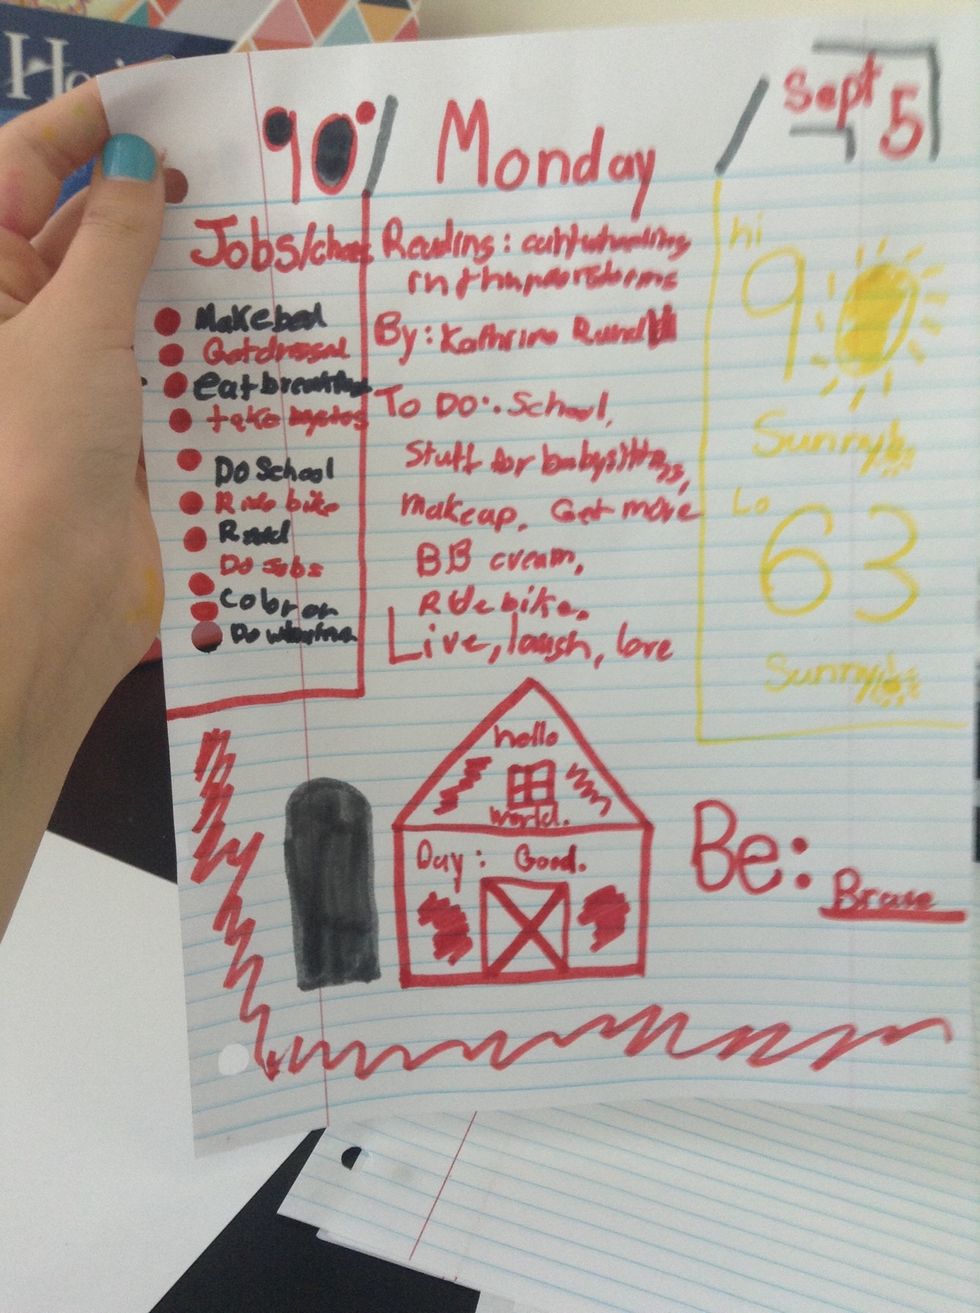 90°/ Monday / Sept 5
Jobs/
Make bed
Get dressed
eat breakfast
take
Do School
Ride bike
Read
Do Jobs
Color on
Do
Reading:
in thunderstorms
By: Kathrine Rundell
To Do: School,
Stuff for babysitting,
Makeup, Get more
BB cream,
Ride bike.
Live, laugh, love
hi
90
Sunny
Lo
63
Sunny
hello
world.
Day: Good.
Be: Brave